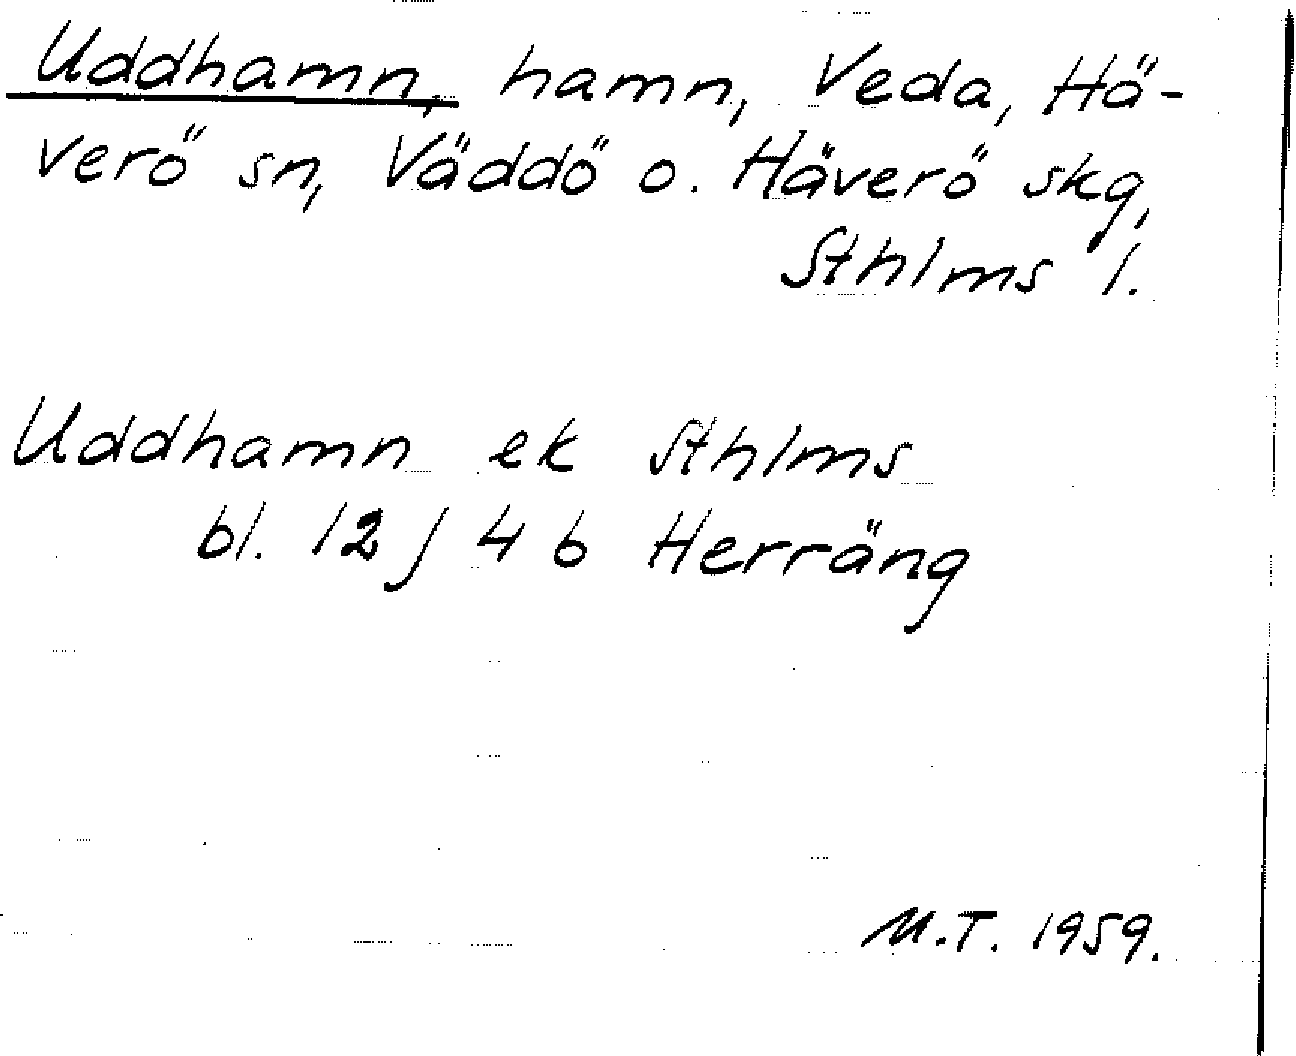 Uddhamn, hamn, Veda, Hä-
verö sn, Väddö o. Häverö skg,
Sthlms l.
Uddhamn ek Sthlms
bl. 12 J 4 b Herräng
M.T. 1959.